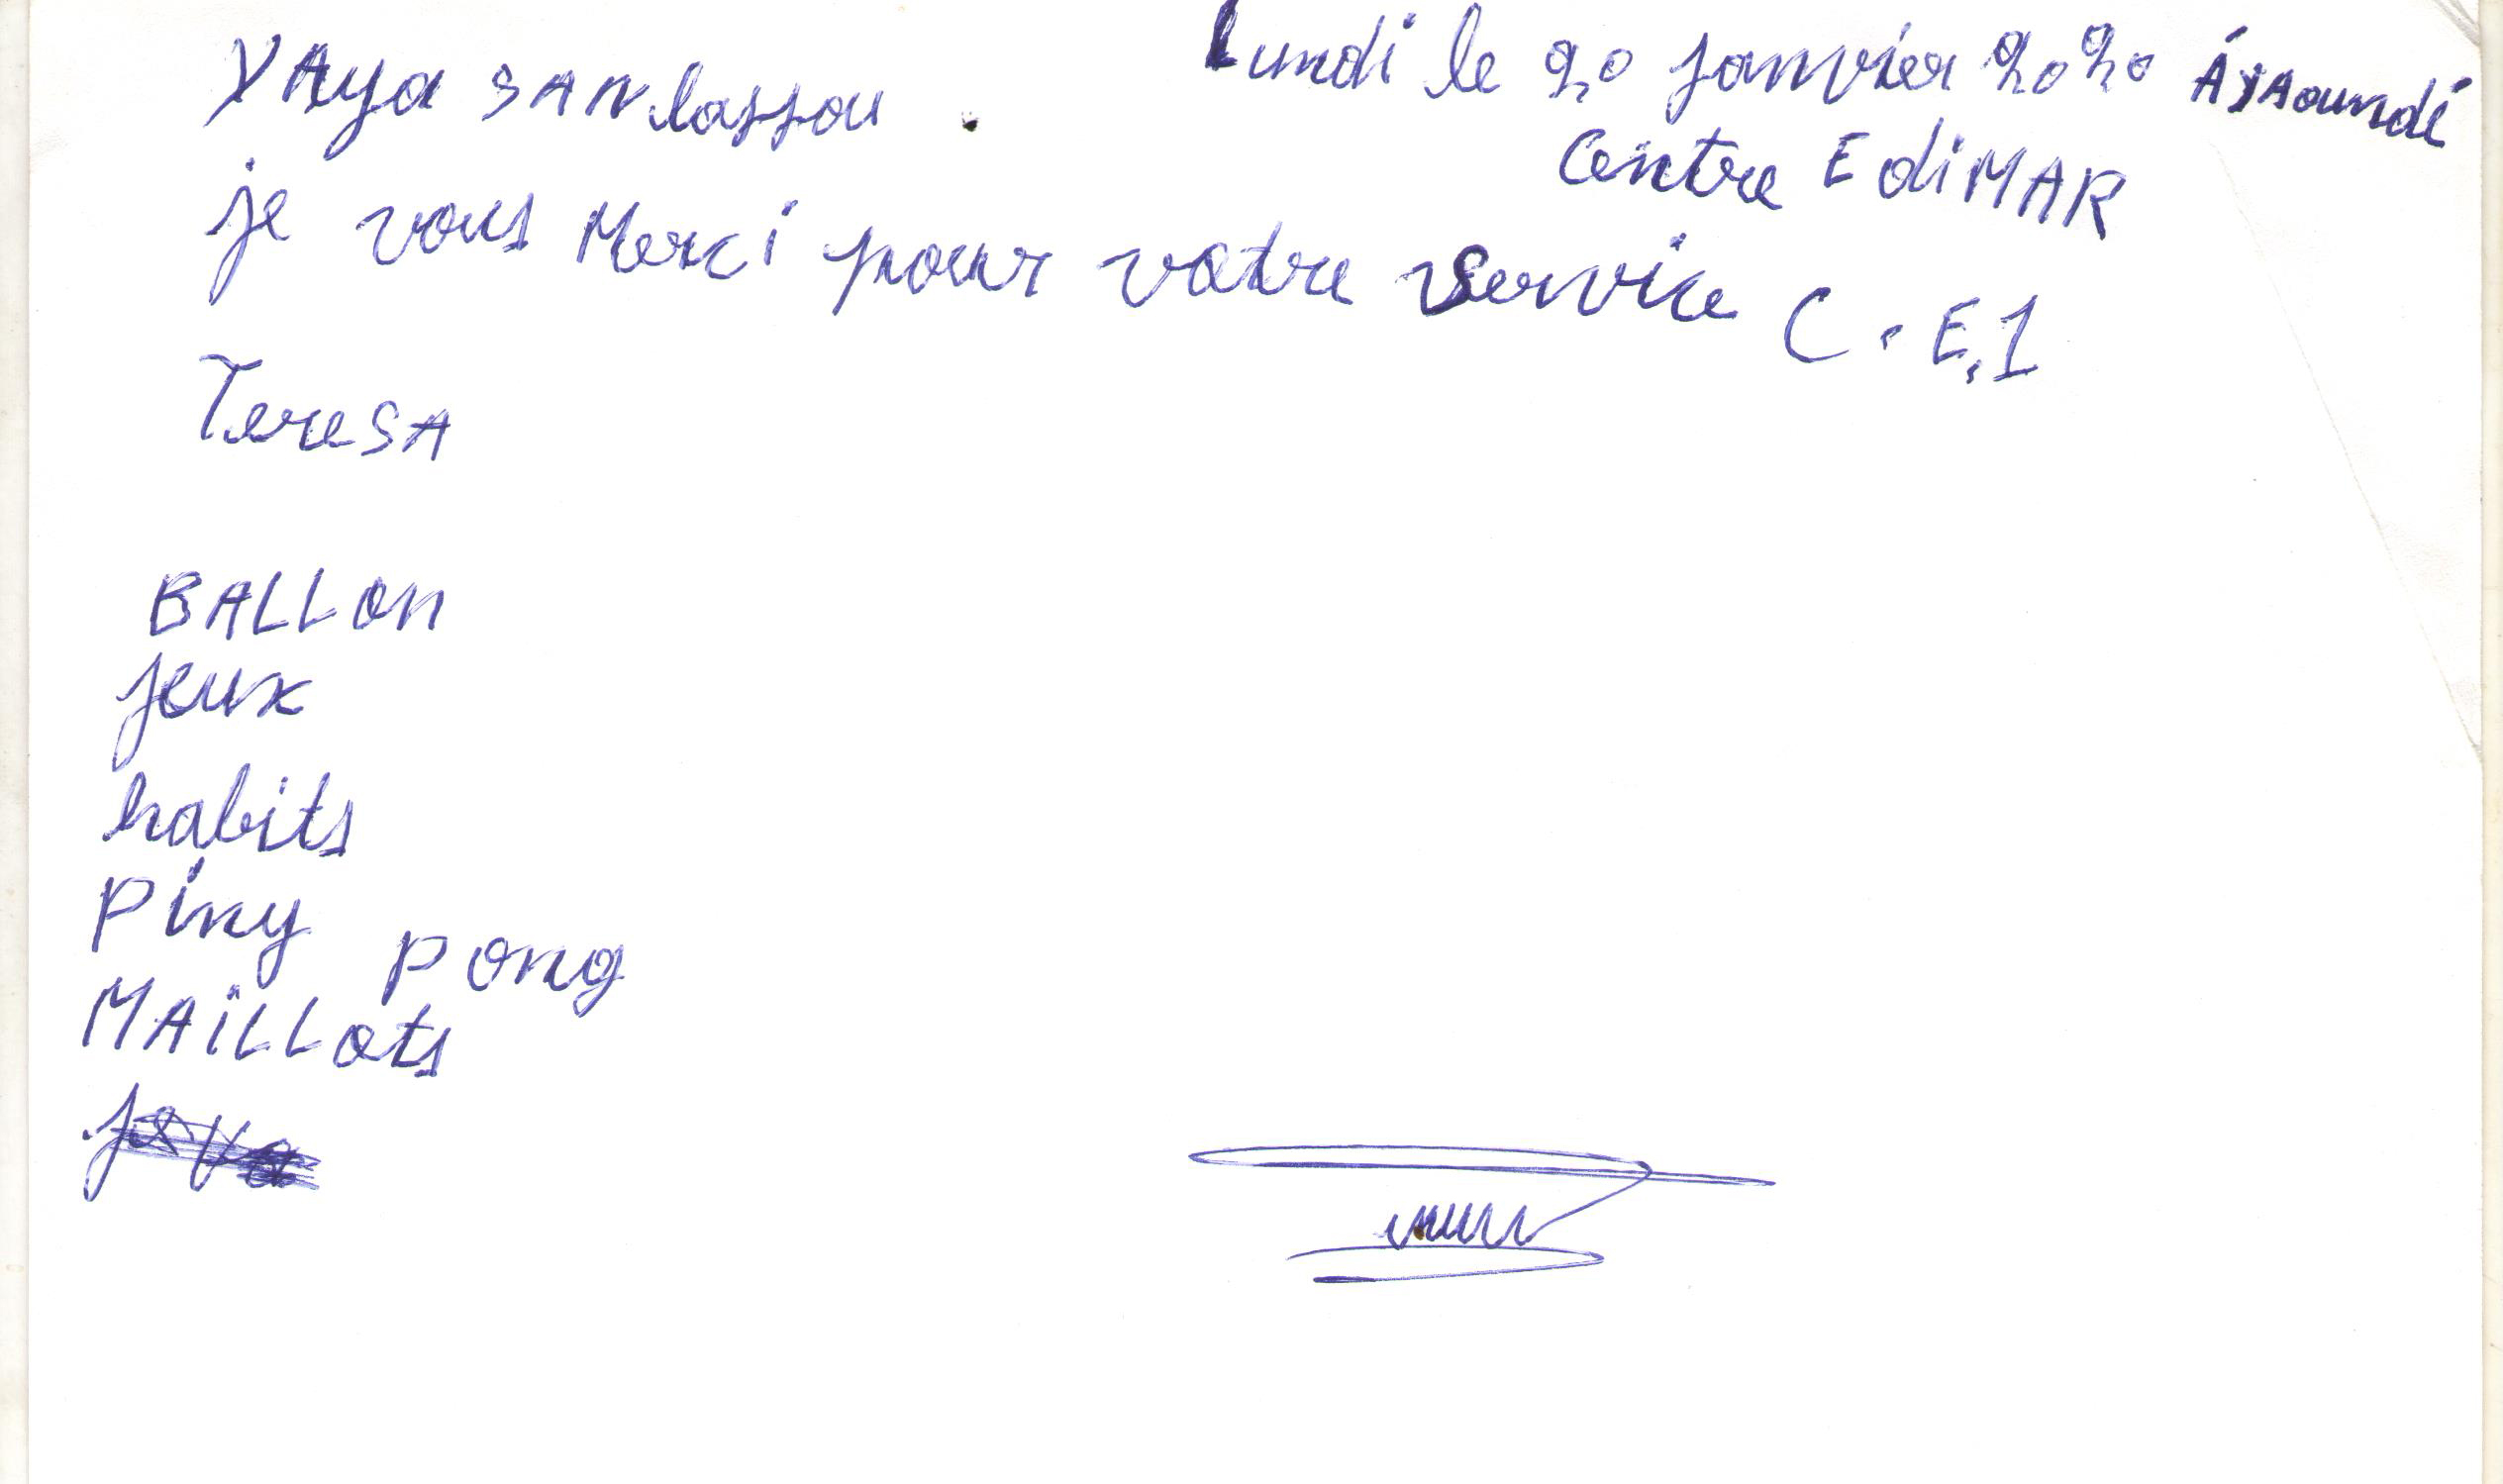 YAya SANlassou.
lundi le 20 janvier 2020 ÁyAoundé
Centre EdiMAR
je vous Merci pour votre service C.E.1
TereSA
BALLon
jeux
habits
Piny pong
MAïLLots